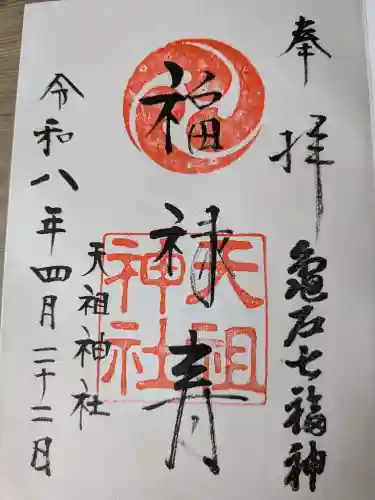 奉拝
亀戸七福神
福禄寿
天祖
神社
天祖神社
令和八年四月二十二日